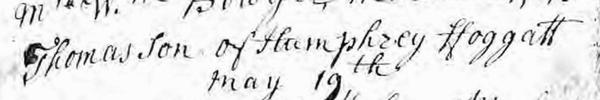 Thomas Son of Humphrey Hoggatt
may 19th